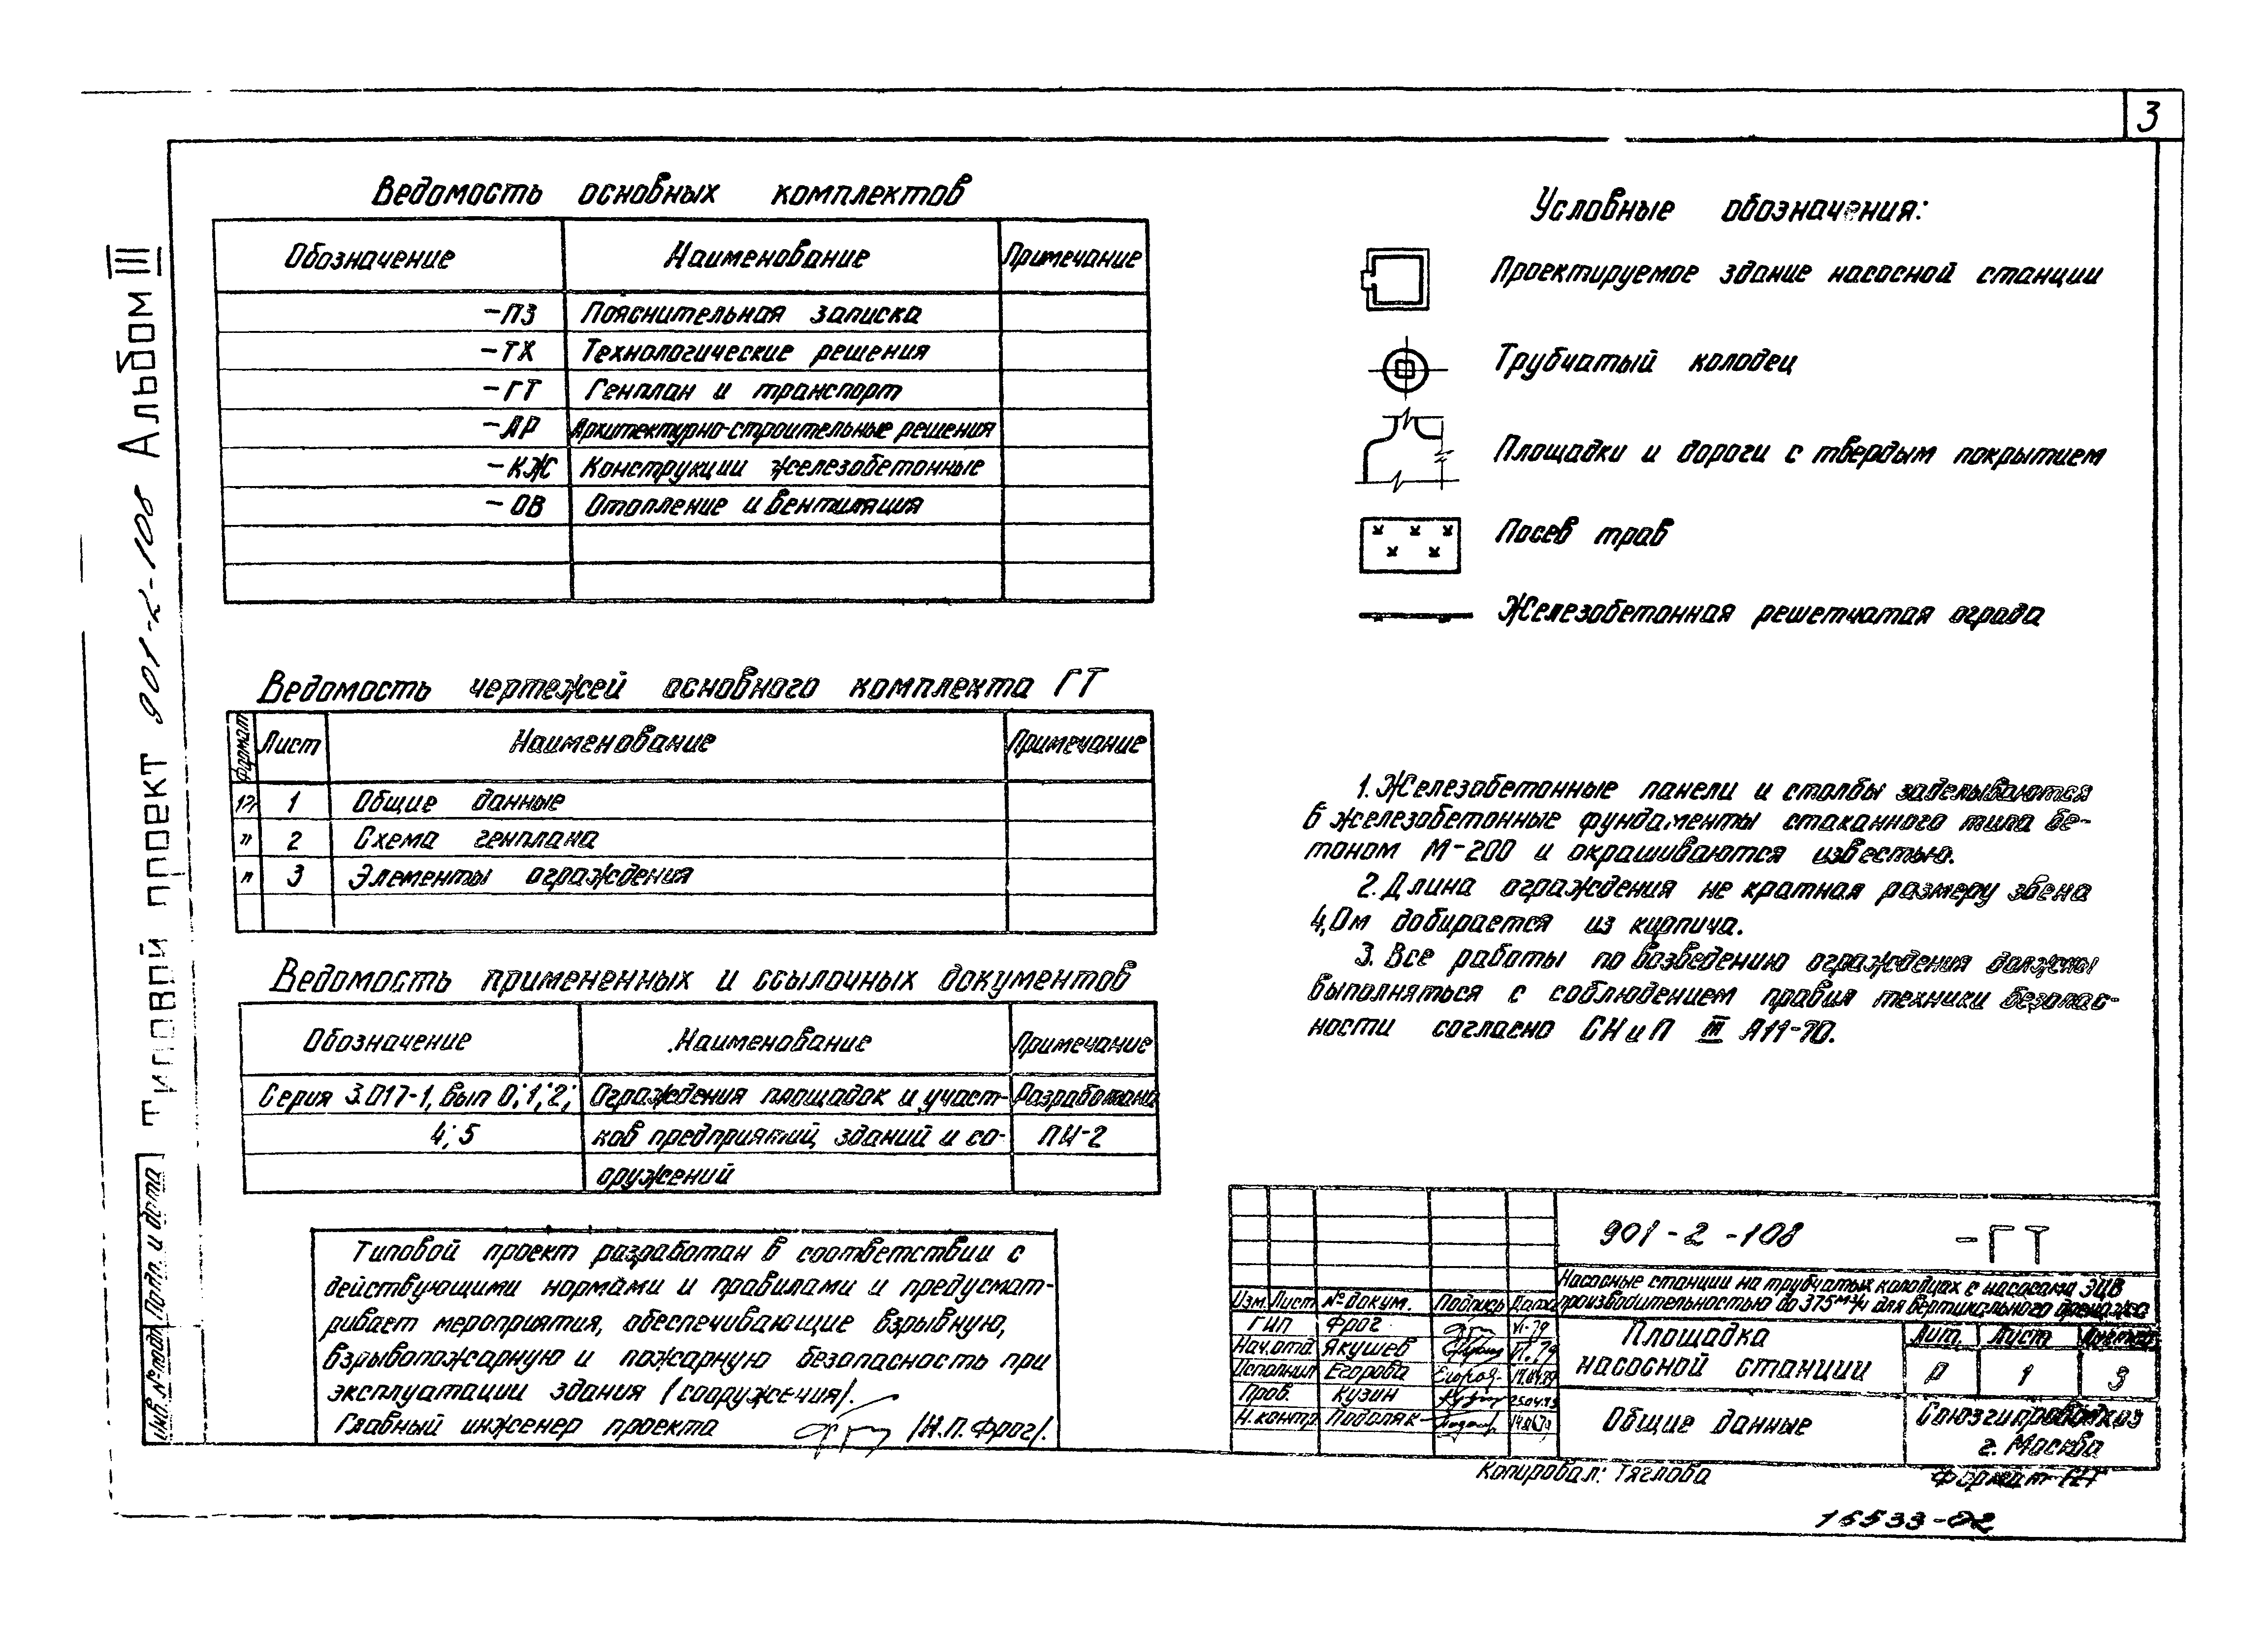 3
Альбом III
Типовой проект 901-2-108
Инв. № подл. Подп. и дата
Ведомость основных комплектов
Обозначение Наименование Примечание
-ПЗ Пояснительная записка
-ТХ Технологические решения
-ГТ Генплан и транспорт
-АР Архитектурно-строительные решения
-КЖ Конструкции железобетонные
-ОВ Отопление и вентиляция
Ведомость чертежей основного комплекта ГТ
Формат Лист Наименование Примечание
12 1 Общие данные
" 2 Схема генплана
" 3 Элементы ограждения
Ведомость примененных и ссылочных документов
Обозначение Наименование Примечание
Серия 3.017-1, вып 0; 1; 2; Ограждения площадок и участ- Разработана
4; 5 ков предприятий, зданий и со- ПИ-2
оружений
Типовой проект разработан в соответствии с
действующими нормами и правилами и предусмат-
ривает мероприятия, обеспечивающие взрывную,
взрывопожарную и пожарную безопасность при
эксплуатации здания /сооружения/.
Главный инженер проекта /Н.П. Фрог/.
Условные обозначения:
Проектируемое здание насосной станции
Трубчатый колодец
Площадки и дороги с твердым покрытием
Посев трав
Железобетонная решетчатая ограда
1. Железобетонные панели и столбы заделываются
в железобетонные фундаменты стаканного типа бе-
тоном М-200 и окрашиваются известью.
2. Длина ограждения не кратная размеру звена
4,0м добирается из кирпича.
3. Все работы по возведению ограждения должны
выполняться с соблюдением правил техники безопас-
ности согласно СНиП III А11-70.
901-2-108 -ГТ
Насосные станции на трубчатых колодцах с насосами ЭЦВ
производительностью до 375 м³/ч для вертикального дренажа
Изм. Лист № докум. Подпись Дата
ГИП Фрог VI-79
Нач.отд. Якушев VI.79
Исполнил Егорова
Пров. Кузин
Н.контр. Подоляк
Площадка
насосной станции
Лит. Лист Листов
Р 1 3
Общие данные
Союзгипроводхоз
г. Москва
Копировал: Тяглова Формат
16533-02